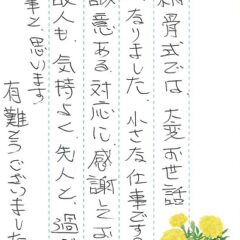 納骨式では、大変お世話
なりました。小さな仕事です
誠意ある、対応に、感謝してお
故人も、気持よく、先人と、過
事と、思います
有難とうございました